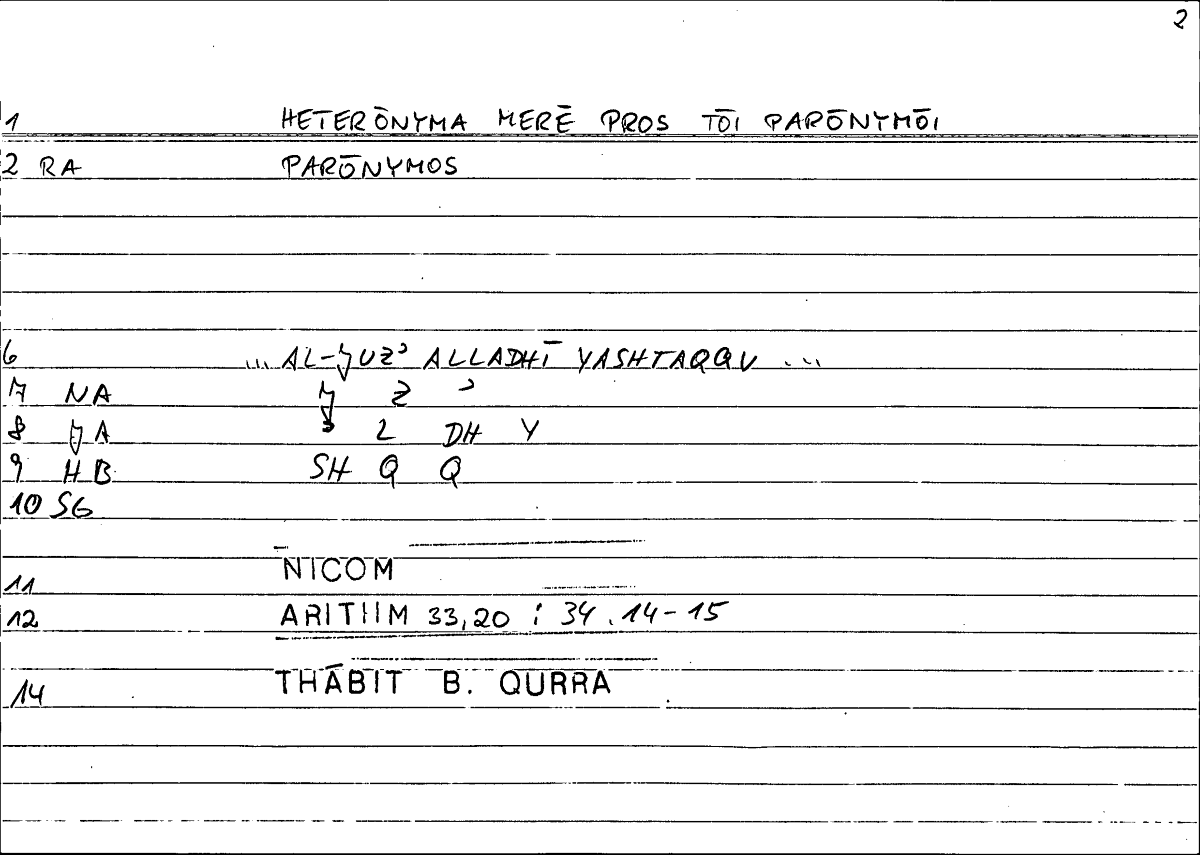 2
1 HETERŌNYMA MERĒ PROS TŌI PARŌNYMŌI
2 RA PARŌNYMOS
6 ... AL-ǦUZʾ ALLADHĪ YASHTAQQU ...
7 NA Ǧ Z ʾ
8 ǦA L DH Y
9 HB SH Q Q
10 SG
11 NICOM
12 ARITHM 33,20 ; 34.14-15
14 THĀBIT B. QURRA